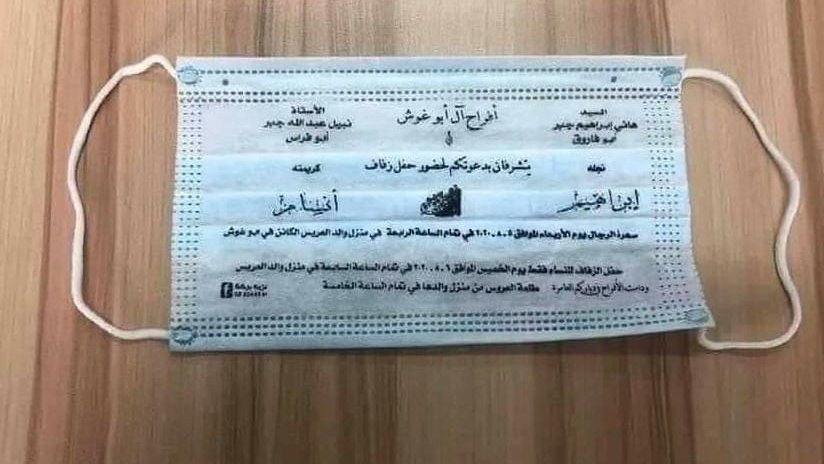 أفراح آل أبو غوش
السيد
هاني إبراهيم جبر
أبو فاروق
الأستاذ
نبيل عبد الله جبر
أبو فراس
يتشرفان بدعوتكم لحضور حفل زفاف
نجله
كريمته
إبراهيم
سهرة الرجال يوم الأربعاء الموافق ٢٠٢٠.٨.٥ في تمام الساعة الرابعة في منزل والد العريس الكائن في ابو غوش
حفل الزفاف للنساء فقط يوم الخميس الموافق ٢٠٢٠.٨.٦ في تمام الساعة السابعة في منزل والد العريس
ودامت الأفراح دياركم العامرة طلعة العروس من منزل والدها في تمام الساعة الخامسة